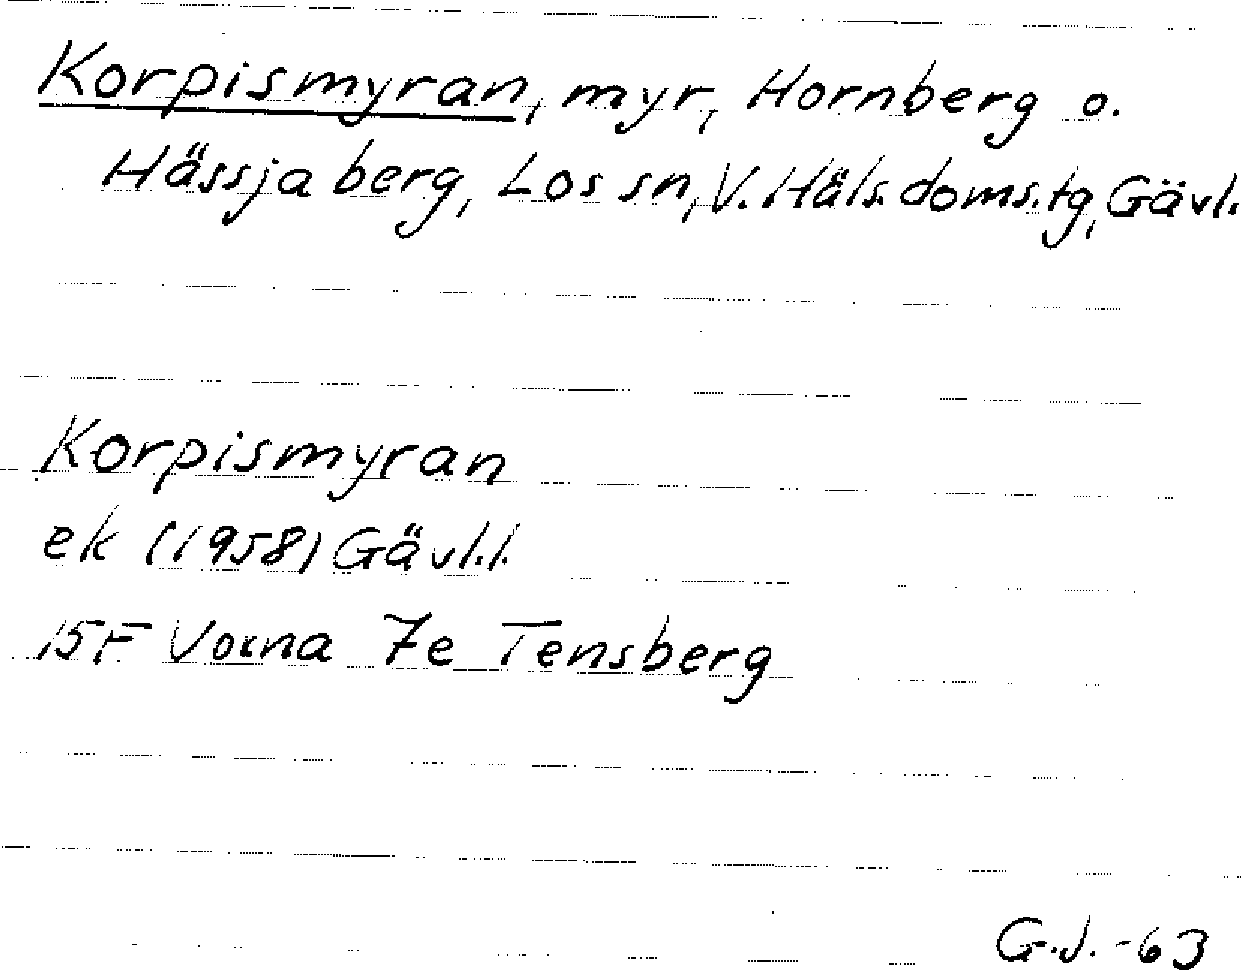 Korpismyran, myr, Hornberg o.
Hässjaberg, Los sn, V. Häls. doms. tg, Gävl.
Korpismyran
ek (1958) Gävl.l.
15F Voxna 7e Tensberg
G.J. -63